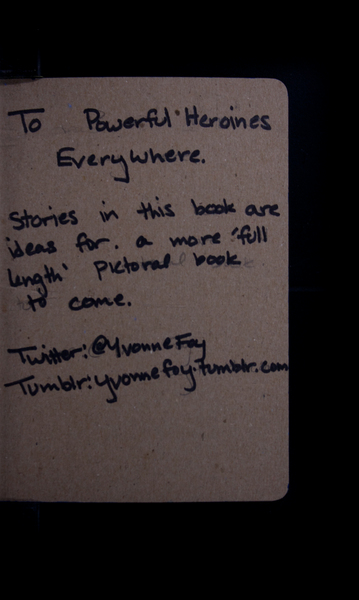 To Powerful Heroines
Everywhere.
Stories in this book are
ideas for. a more 'full
length' Pictoral book
to come.
Twitter: @YvonneFoy
Tumblr: yvonnefoy.tumblr.com